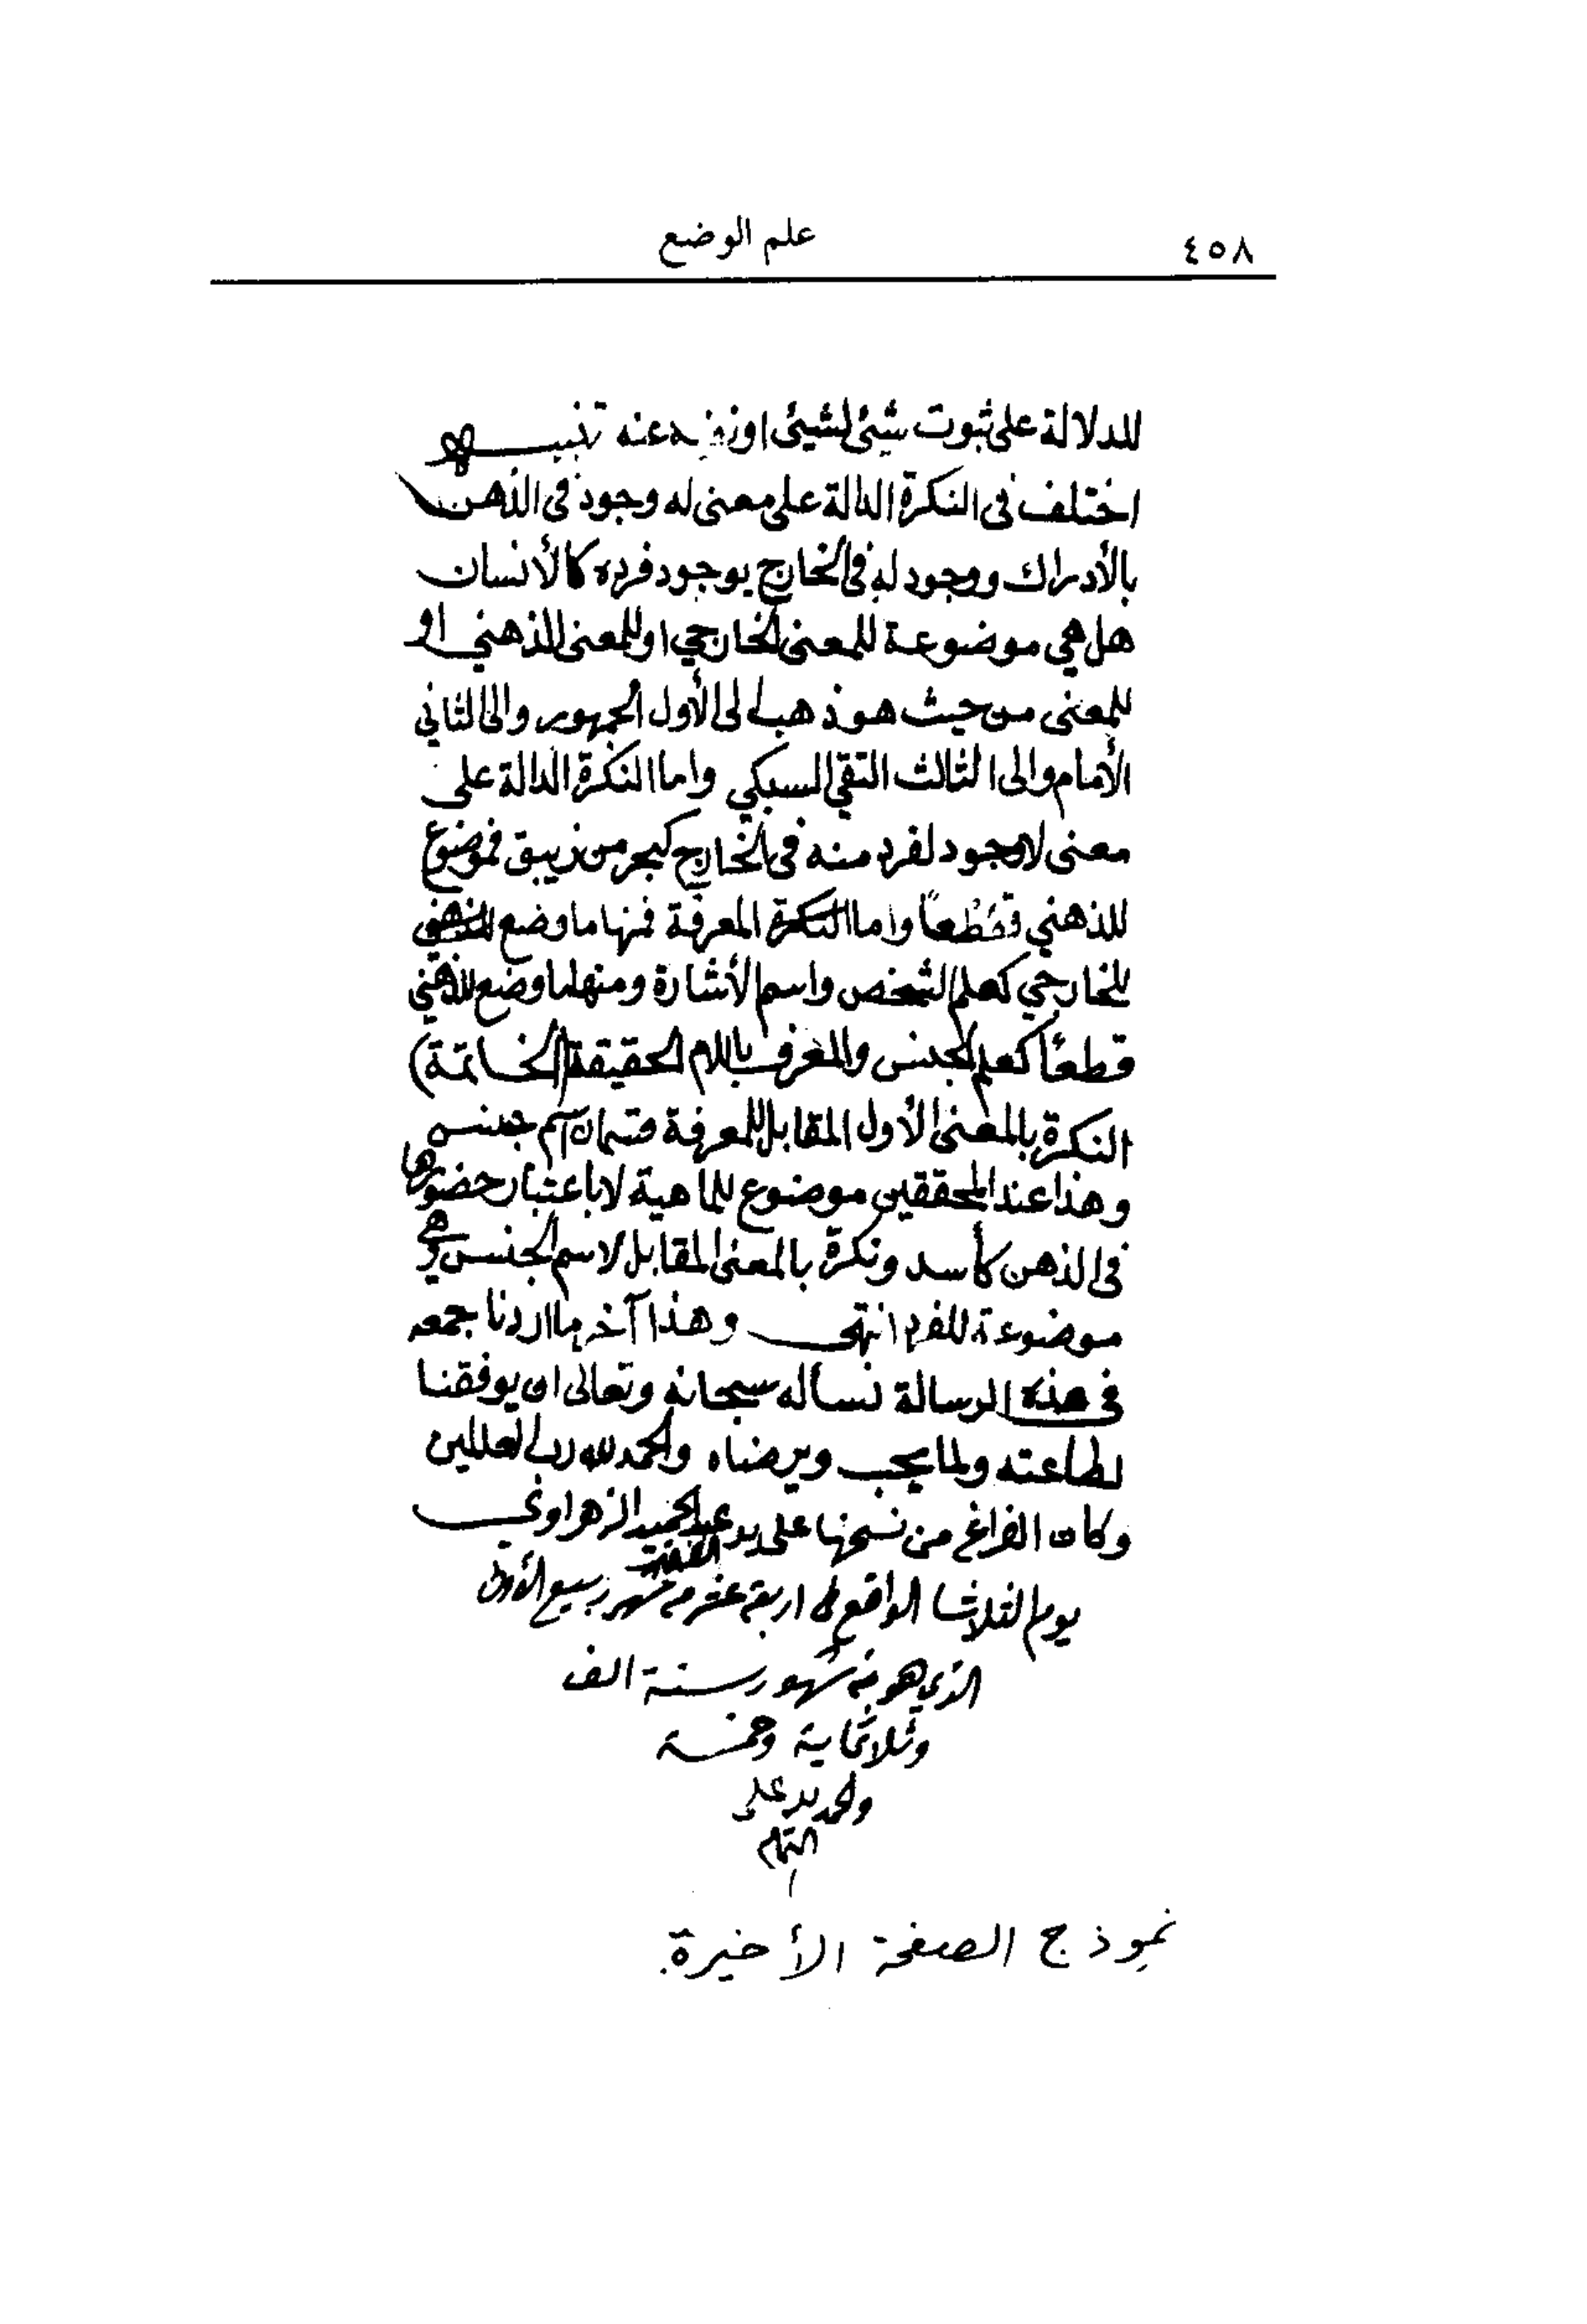 ٤٥٨
علم الوضع
للدلالة على ثبوت شيئ لشيئ او نفيه عنه تنبيه
اختلف فى النكرة الدالة على معنى له وجود فى الذهن
بالأدراك ووجود له فى الخارج بوجود فرده كالأنسان
هل هي موضوعة للمعنى الخارجي او للمعنى الذهني او
للمعنى من حيث هو ذهب الى الأول الجمهور والى الثاني
الأمام والى الثالث التقي السبكي واما النكرة الدالة على
معنى لا وجود لفرد منه فى الخارج كبحر من زيبق فموضوع
للذهني قطعًا واما المعرفة فمنها ما وضع
للخارجي كعلم الشخص واسم الأشارة ومنها ما وضع للذهني
قطعًا كعلم الجنس والمعرف باللام الحقيقة (الخاتمة)
النكرة بالمعنى الأول المقابل للمعرفة قسمان اسم جنس
وهذا عند المحققين موضوع للماهية لا باعتبار حضورها
فى الذهن كأسد ونكرة بالمعنى المقابل لاسم الجنس وهي
موضوعة للفرد انتهى وهذا آخر ما اردنا جمعه
فى هذه الرسالة نسأله سبحانه وتعالى ان يوفقنا
لطاعته ولما يحب ويرضاه والحمد لله رب العالمين
وكان الفراغ من نسخها على يد عبد الحميد الزهراوي
يوم الثلاثا الواقع فى اربعة عشر من شهر ربيع الأول
الذي هو من شهور سنة الف
وثلاثماية وخمسة
والحمد لله على
التمام
نموذج الصفحة الأخيرة.